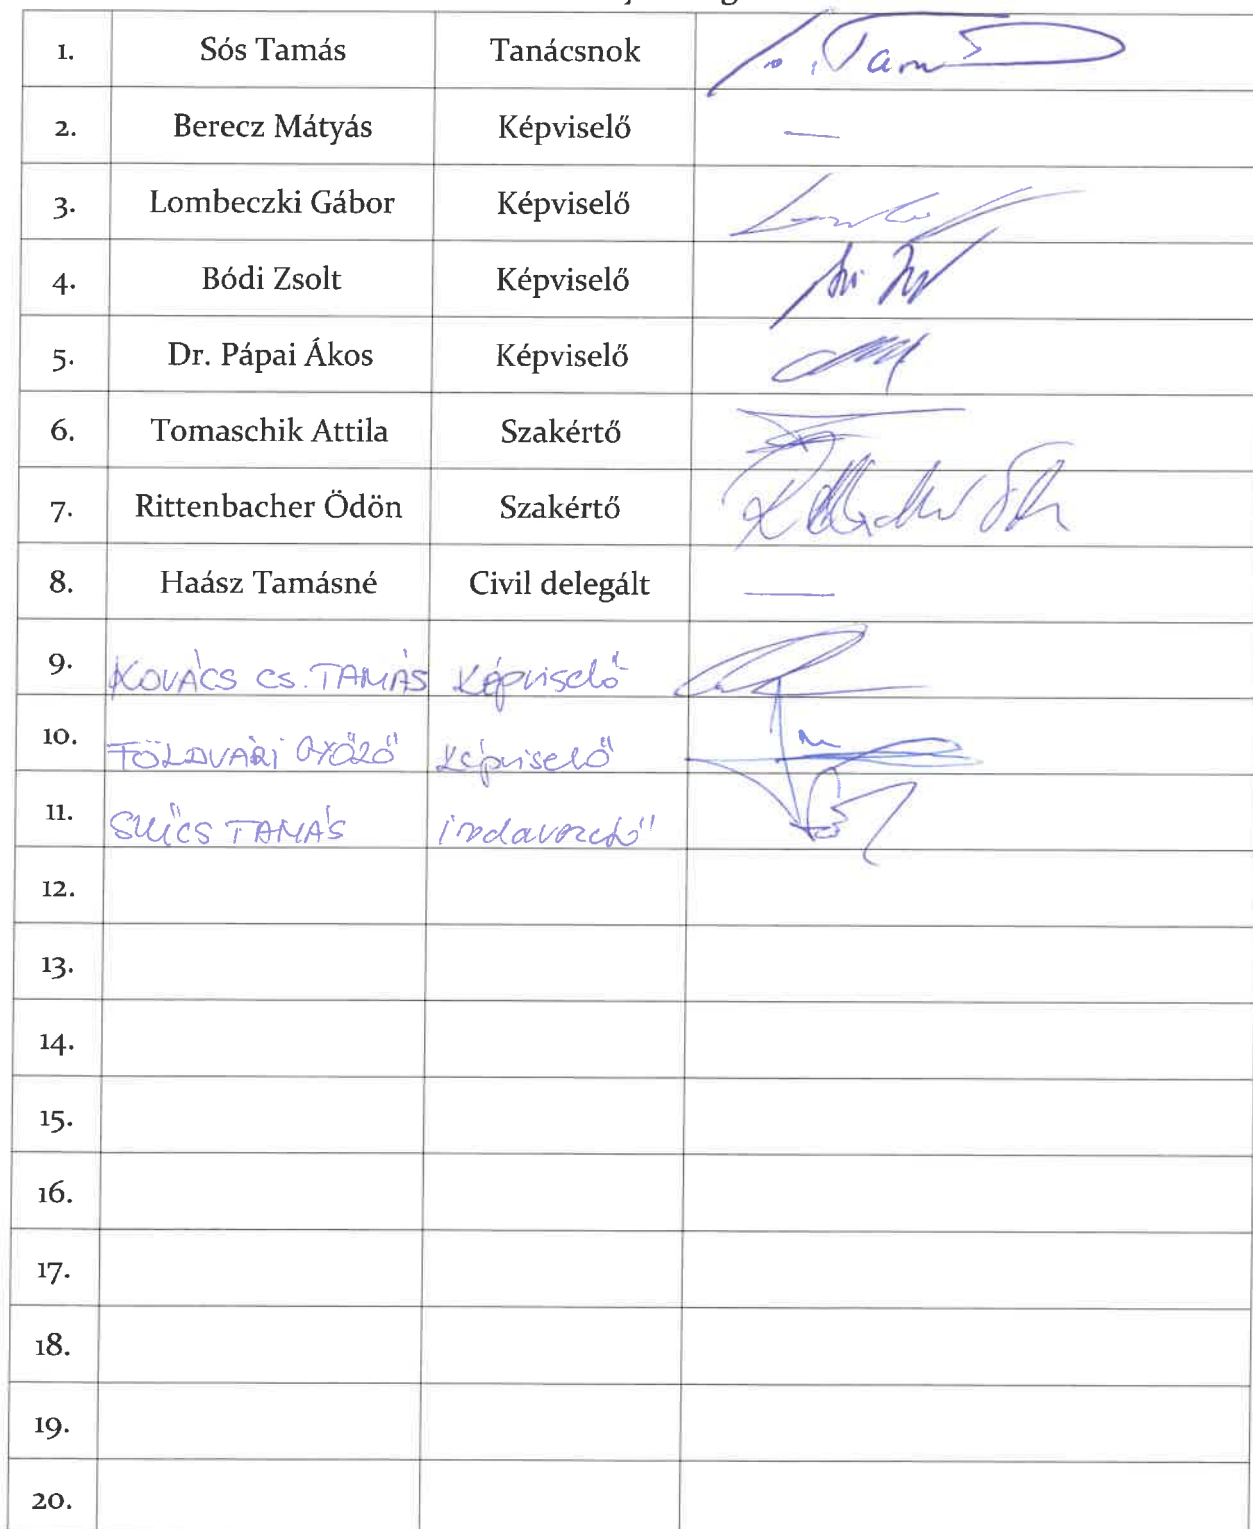 1. Sós Tamás Tanácsnok
2. Berecz Mátyás Képviselő —
3. Lombeczki Gábor Képviselő
4. Bódi Zsolt Képviselő
5. Dr. Pápai Ákos Képviselő
6. Tomaschik Attila Szakértő
7. Rittenbacher Ödön Szakértő
8. Haász Tamásné Civil delegált —
9. KOVÁCS CS. TAMÁS Képviselő
10. FÖLDVÁRI GYŐZŐ Képviselő
11. SZŰCS TAMÁS irodavezető
12.
13.
14.
15.
16.
17.
18.
19.
20.